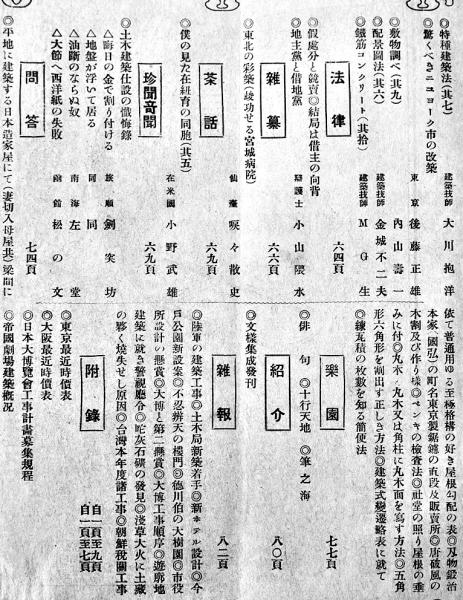 ◎特種建築法(其七) 建築技師 大川抱洋
◎驚くべきニユヨーク市の改築
東京 後藤正雄
◎敷物調べ(其九) 內山壽一
◎配景圖法(其六) 建築技師 金城不二夫
◎鐵筋コンクリート(其拾) 建築技師 M G 生
法律 六四頁
◎假處分と競賣◎結局は借主の向背
◎地主黨と借地黨 辯護士 小山隈水
雜纂 六六頁
◎東北の彩築(竣功せる宮城病院)
仙臺 唳々散史
茶話 六九頁
◎僕の見た在紐育の同胞(其五)
在米國 小野武雄
珍聞奇聞 六九頁
◎土木建築仕設の懺悔錄
△晦日の金で割り付ける 旅順 劍突坊
△地盤が浮いて居る 同 同
△油斷のならぬ奴 南海 左堂
△大節へ西洋紙の失敗 函館 松の文
問答 七四頁
◎平地に建築する日本造家屋にて(妻切入母屋共)梁間に
依て普通用ゆる至極格構の好き屋根勾配の表◎刃物鍛治
本家(國弘)の町名東京製鋸鑢の直段及販賣所◎唐破風の
木割及び作り樣◎ペンキの檢査法◎社堂の照り屋根の垂
みに付◎丸木、丸木又は角柱に丸木面を寫す方法◎五角
形六角形を割出す正しき方法◎建築式變遷略表に就て
◎煉瓦積の枚數を知る簡便法
樂園 七七頁
◎俳句◎十行天地◎筆之海
紹介 八〇頁
◎文樣集成發刊
雜報 八二頁
◎陸軍の建築工事◎土木局新築着手◎新ホテル設計◎今
戶公園新設案◎不忍辨天の樓門◎德川伯の大樹園◎市役
所設計の懸賞◎大博と第二懸賞◎大博工事順序◎遊廓地
建築に就き警視廳令◎蛇灰石礦の發見◎淺草大火に土藏
の夥く燒失せし原因◎台灣本年度諸工事◎朝鮮稅關工事
附錄 自一頁至九頁 自一頁至七頁
◎東京最近時價表
◎大阪最近時價表
◎日本大博覽會工事計畫募集規程
◎帝國劇場建築概况